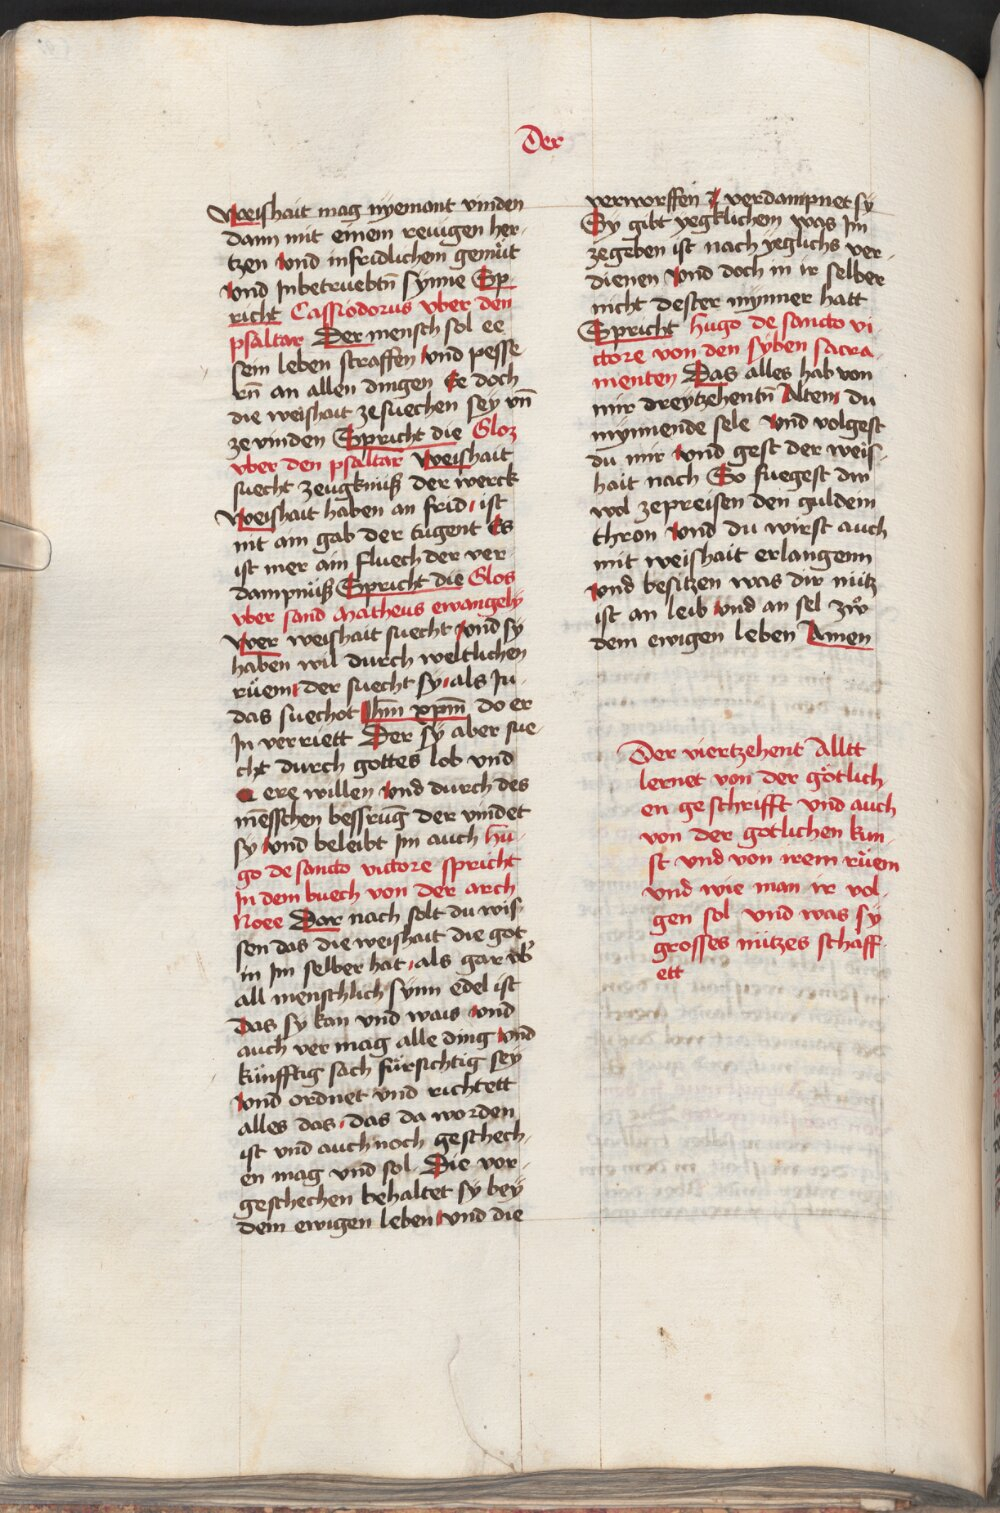 Der
Weishait mag nyemant vinden
dann mit einem reuigen her-
tzen vnd infridlichem gemüt
vnd Inbetruebtn̄ synne Sp
richt Cassiodorus vber den
psaltar Der mensch sol ee
sein leben straffen vnd pesse
rn̄ an allen dingen Ee doch
die weishait ze suechen sey vn̄
ze vinden Spricht die Gloz
vber den psaltar Weishait
suecht zeugknüß der werck
Weishait haben an frid ist
nit ain gab der tugent Es
ist mer ain fluech der ver
dampnüß Spricht die Glos
vber sand Matheus ewangely
Wer weishait suecht vnd sy
haben wil durch weltlichen
rüem der suecht sy als Ju-
das suechot Jhm̄ xp̄m do er
In verriett Der sy aber sue-
cht durch gottes lob vnd
ere willen vnd durch des
mēsschen bessrūg der vindet
sy vnd beleibt Im auch hu-
go de sancto victore spricht
In dem buech von der arch
Noee Dar nach solt du wis-
sen das die weishait die got
in Im selber hat als gar vb̄
all menschlich synn edel ist
Das sy kan vnd wais vnd
auch vermag alle ding vnd
künfftig sach fürsichtig sey
vnd ordnet vnd richtett
alles das das da worden
ist vnd auch noch geschech-
en mag vnd sol Die vor-
geschechen behaltet sy bey
dem ewigen leben vnd die
verworffen vnd verdampnet sy
Sy gibt yegklichem was Im
zegeben ist nach yeglichs ver-
dienen vnd doch in ir selber
nicht dester mynner hatt
Spricht Hugo de sancto vi
ctore von den syben sacra-
menten Das alles hab von
mir dreytzehentn̄ Alten du
mynnende sele vnd volgest
du mir vnd gest der weis-
hait nach So fuegest dw
wol ze preisen den guldein
thron vnd du wirst auch
mit weishait erlangenn
vnd besitzen was dir nütz
ist an leib vnd an sel zw̄
dem ewigen leben Amen
Der viertzehent Alltt
lernet von der götlich
en geschrifft vnd auch
von der gotlichen kun
st vnd von irem rüem
vnd wie man ir vol-
gen sol vnd was sy
grosses nützes schaff
ett